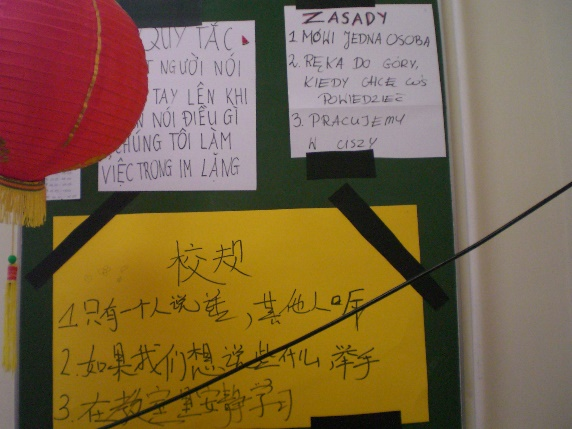 QUY TẮC
NGƯỜI NÓI
TAY LÊN KHI
NÓI ĐIỀU GÌ
CHÚNG TÔI LÀM
VIỆC TRONG IM LẶNG
ZASADY
1 MÓWI JEDNA OSOBA
2. RĘKA DO GÓRY,
KIEDY CHCĘ COŚ
POWIEDZIEĆ
3. PRACUJEMY
W CISZY
校规
1.只有一个人说话,其他人听
2.如果我们想说些什么,举手
3.在教室里安静学习